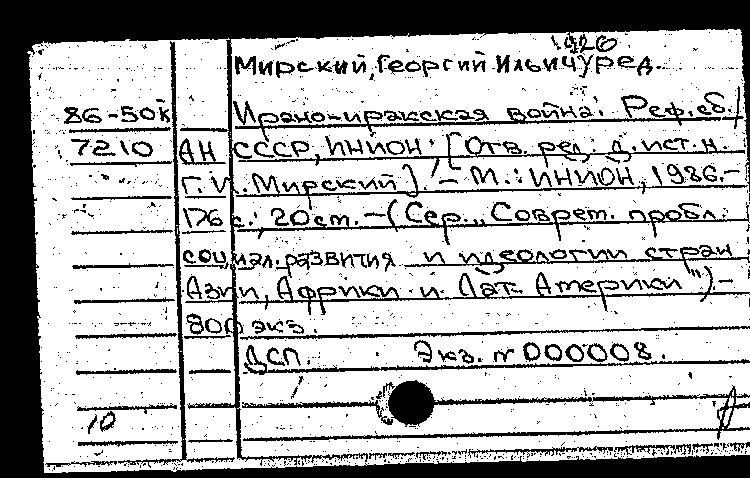 1926
Мирский, Георгий Ильич, ред.
86-50к Ирано-иракская война: Реф. сб. /
7210 АН СССР, ИНИОН; [Отв. ред. д. ист. н.
Г. И. Мирский]. - М.: ИНИОН, 1986. -
176 с.; 20 см. - (Сер. „Соврем. пробл.
социал. развития и идеологии стран
Азии, Африки и Лат. Америки") -
800 экз.
ДСП. Экз. N 000008.
10